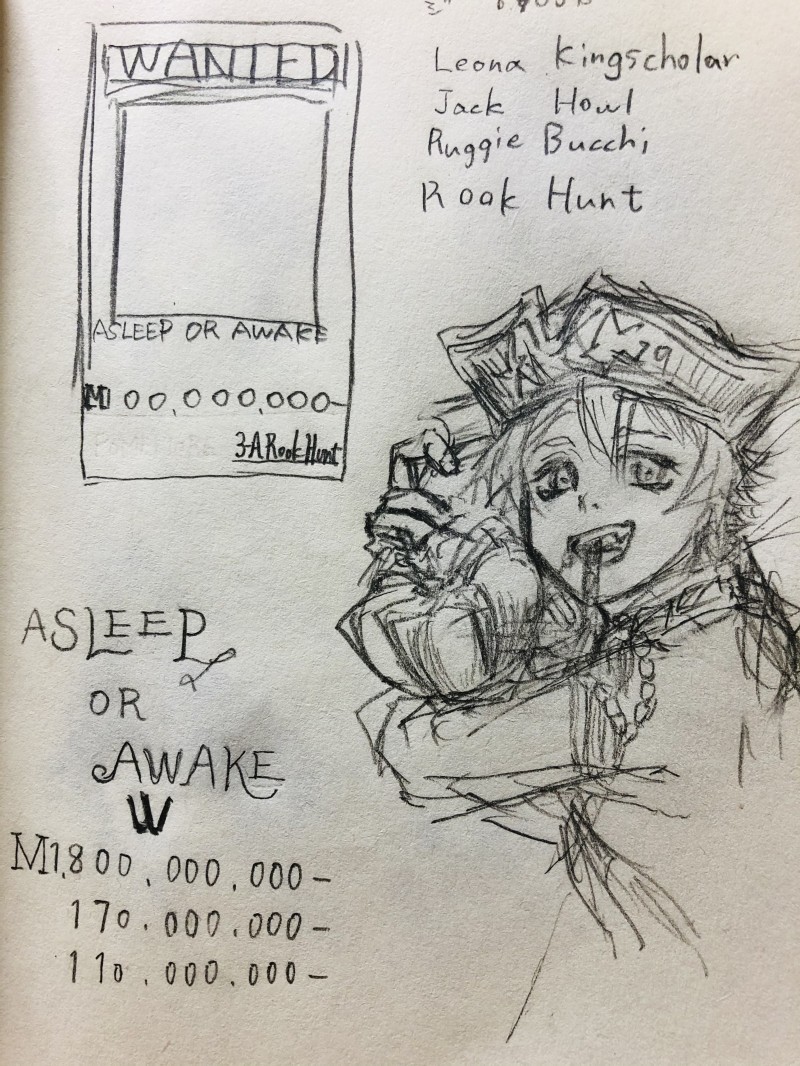 WANTED
ASLEEP OR AWAKE
M 00,000,000-
3-A Rook Hunt
Leona Kingscholar
Jack Howl
Ruggie Bucchi
Rook Hunt
ASLEEP
OR
AWAKE
W
M1,800,000,000-
170,000,000-
110,000,000-